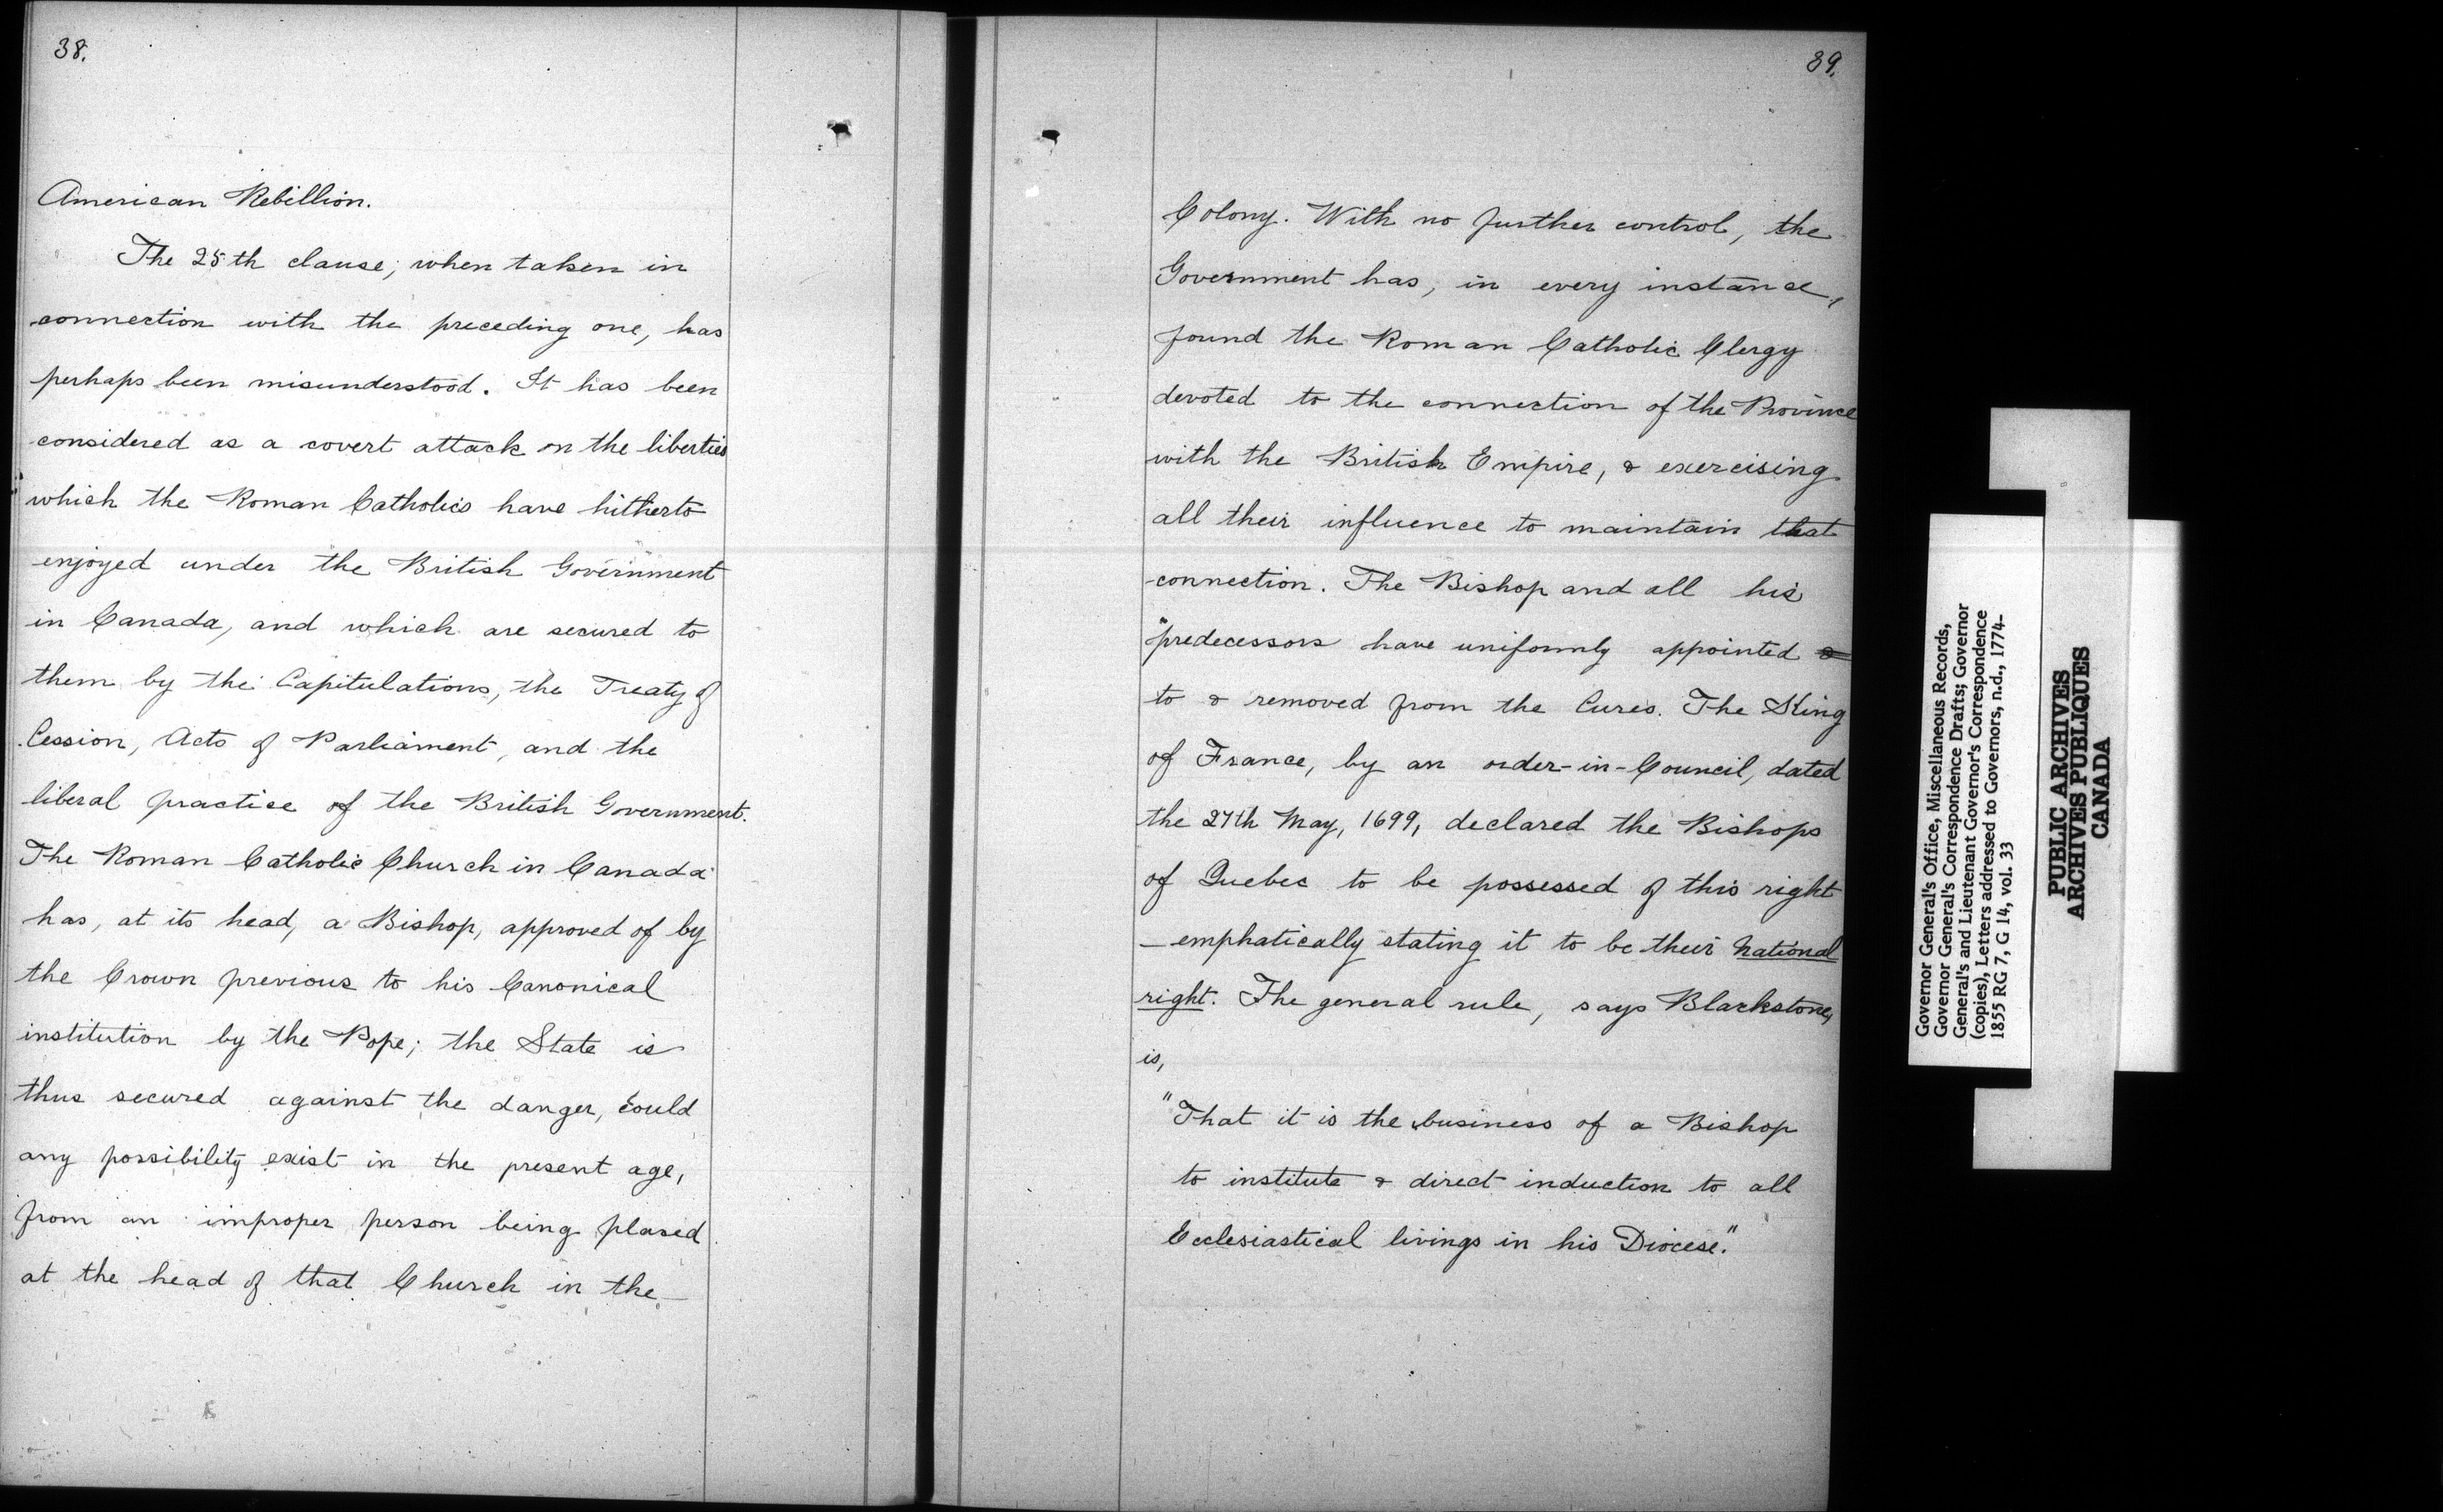 38.
American Rebillion.
The 25th clause, when taken in
connection with the preceding one, has
perhaps been misunderstood. It has been
considered as a covert attack on the liberties
which the Roman Catholics have hitherto
enjoyed under the British Government
in Canada, and which are secured to
them by the Capitulations, the Treaty of
Cession, Acts of Parliament, and the
liberal practice of the British Government.
The Roman Catholic Church in Canada
has, at its head, a Bishop, approved of by
the Crown previous to his Canonical
institution by the Pope; the State is
thus secured against the danger, could
any possibility exist in the present age,
from an improper person being placed
at the head of that Church in the
39.
Colony. With no further control, the
Government has, in every instance,
found the Roman Catholic Clergy
devoted to the connection of the Province
with the British Empire, & exercising
all their influence to maintain that
connection. The Bishop and all his
predecessors have uniformly appointed &
to & removed from the Cures. The King
of France, by an order-in-Council, dated
the 27th May, 1699, declared the Bishops
of Quebec to be possessed of this right
— emphatically stating it to be their National
right. The general rule, says Blackstone,
is,
"That it is the business of a Bishop
to institute & direct induction to all
Ecclesiastical livings in his Diocese."
Governor General's Office, Miscellaneous Records,
Governor General's Correspondence Drafts; Governor
General's and Lieutenant Governor's Correspondence
(copies), Letters addressed to Governors, n.d., 1774-
1855 RG 7, G 14, vol. 33
PUBLIC ARCHIVES
ARCHIVES PUBLIQUES
CANADA